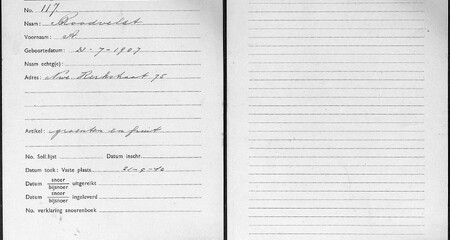 No. 117
Naam: Roodveldt
Voornaam: A
Geboortedatum: 21-7-1907
Naam echtg(e):
Adres: Nwe Kerkstraat 75
Artikel: groenten en fruit
No. Soll.lijst Datum inschr.
Datum toek: Vaste plaats
Datum snoer/bijsnoer uitgereikt
Datum snoer/bijsnoer ingeleverd
No. verklaring snoerenboek